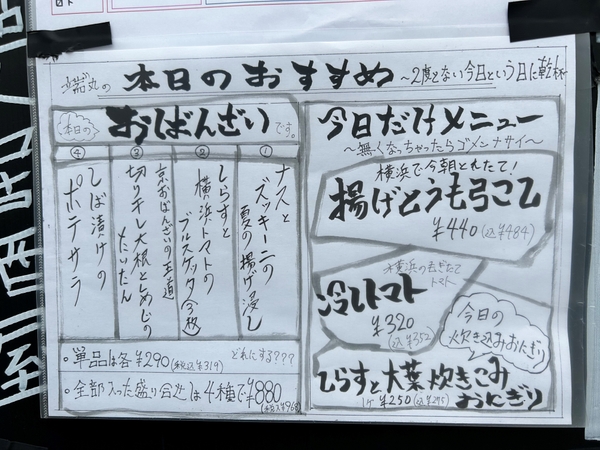 本日のおすすめ 〜2度とない今日という日に乾杯〜
本日の おばんざい です。
① ナスとズッキーニの
夏の揚げ浸し
② しらすと
横浜トマトの
ブルスケッタ(3枚)
③ 京おばんざいの王道
切り干し大根としめじの
たいたん
④ しば漬けの
ポテサラ
・単品は各¥290(税込¥319) どれにする???
・全部入った盛り合せは4種で¥880
(税込¥968)
今日だけメニュー
〜無くなっちゃったらゴメンナサイ〜
横浜で今朝とれたて!
揚げとうもろこし
¥440(込¥484)
横浜の去ぎたて
トマト
冷しトマト
¥320
(込¥352)
今日の
炊き込みおにぎり
しらすと大葉炊きこみ
おにぎり
1ケ ¥250(込¥275)